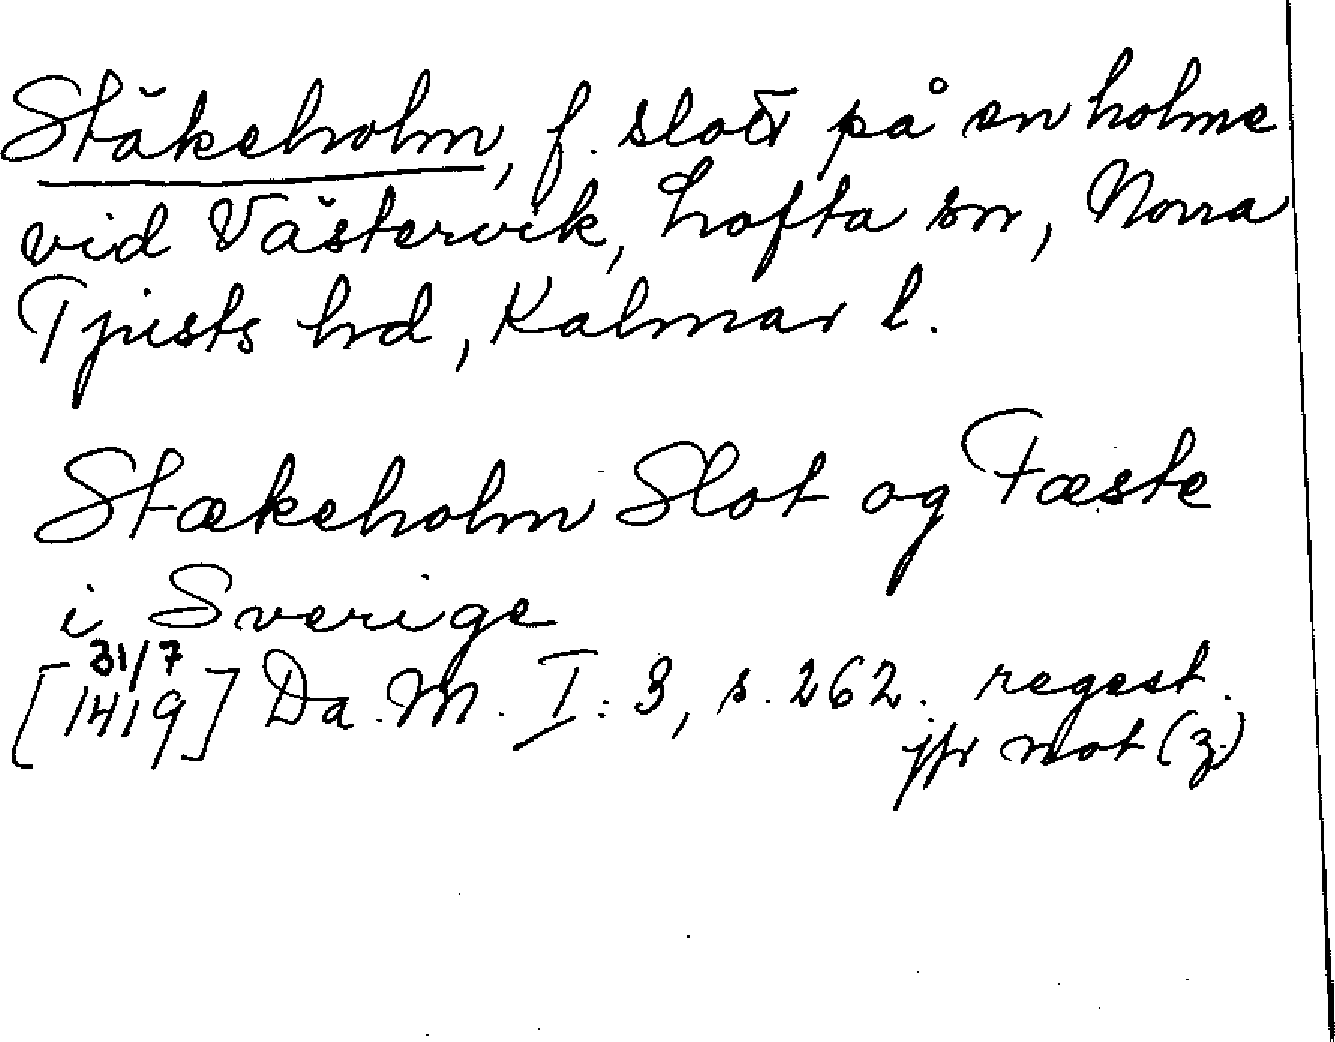 Stäkeholm, f. slott på en holme
vid Västervik, Lofta sn, Norra
Tjusts hrd, Kalmar l.
Stækeholm Slot og Fæste
i Sverige
[31/7 1419] Da. M. I: 3, s. 262. regest.
jfr not (z)